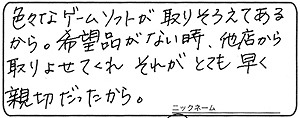 色々なゲームソフトが取りそろえてある
から。希望品がない時、他店から
取りよせてくれ それが とても 早く
親切だったから。
ニックネーム